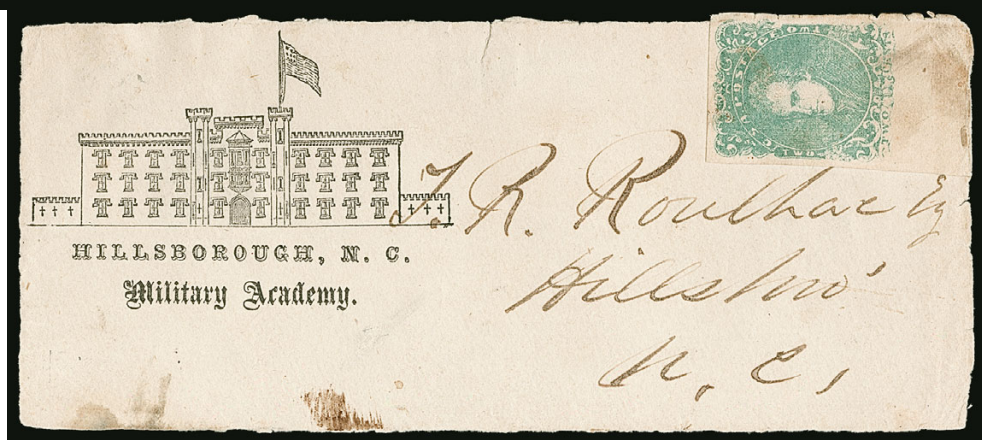 HILLSBOROUGH, N. C.
Military Academy.
J. R. Roulhac Esq
Hillsboro'
N. C.
C S A POSTAGE
TWO